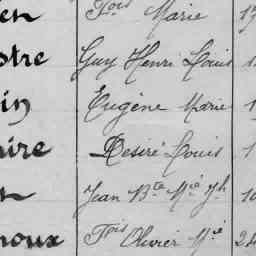 en Fois Marie 1
stre Guy Henri Louis 1
in Eugène Marie 1
aire Désiré Louis 1
n Jean Bte Mie Jh 10
noux Fois Olivier Mie 24